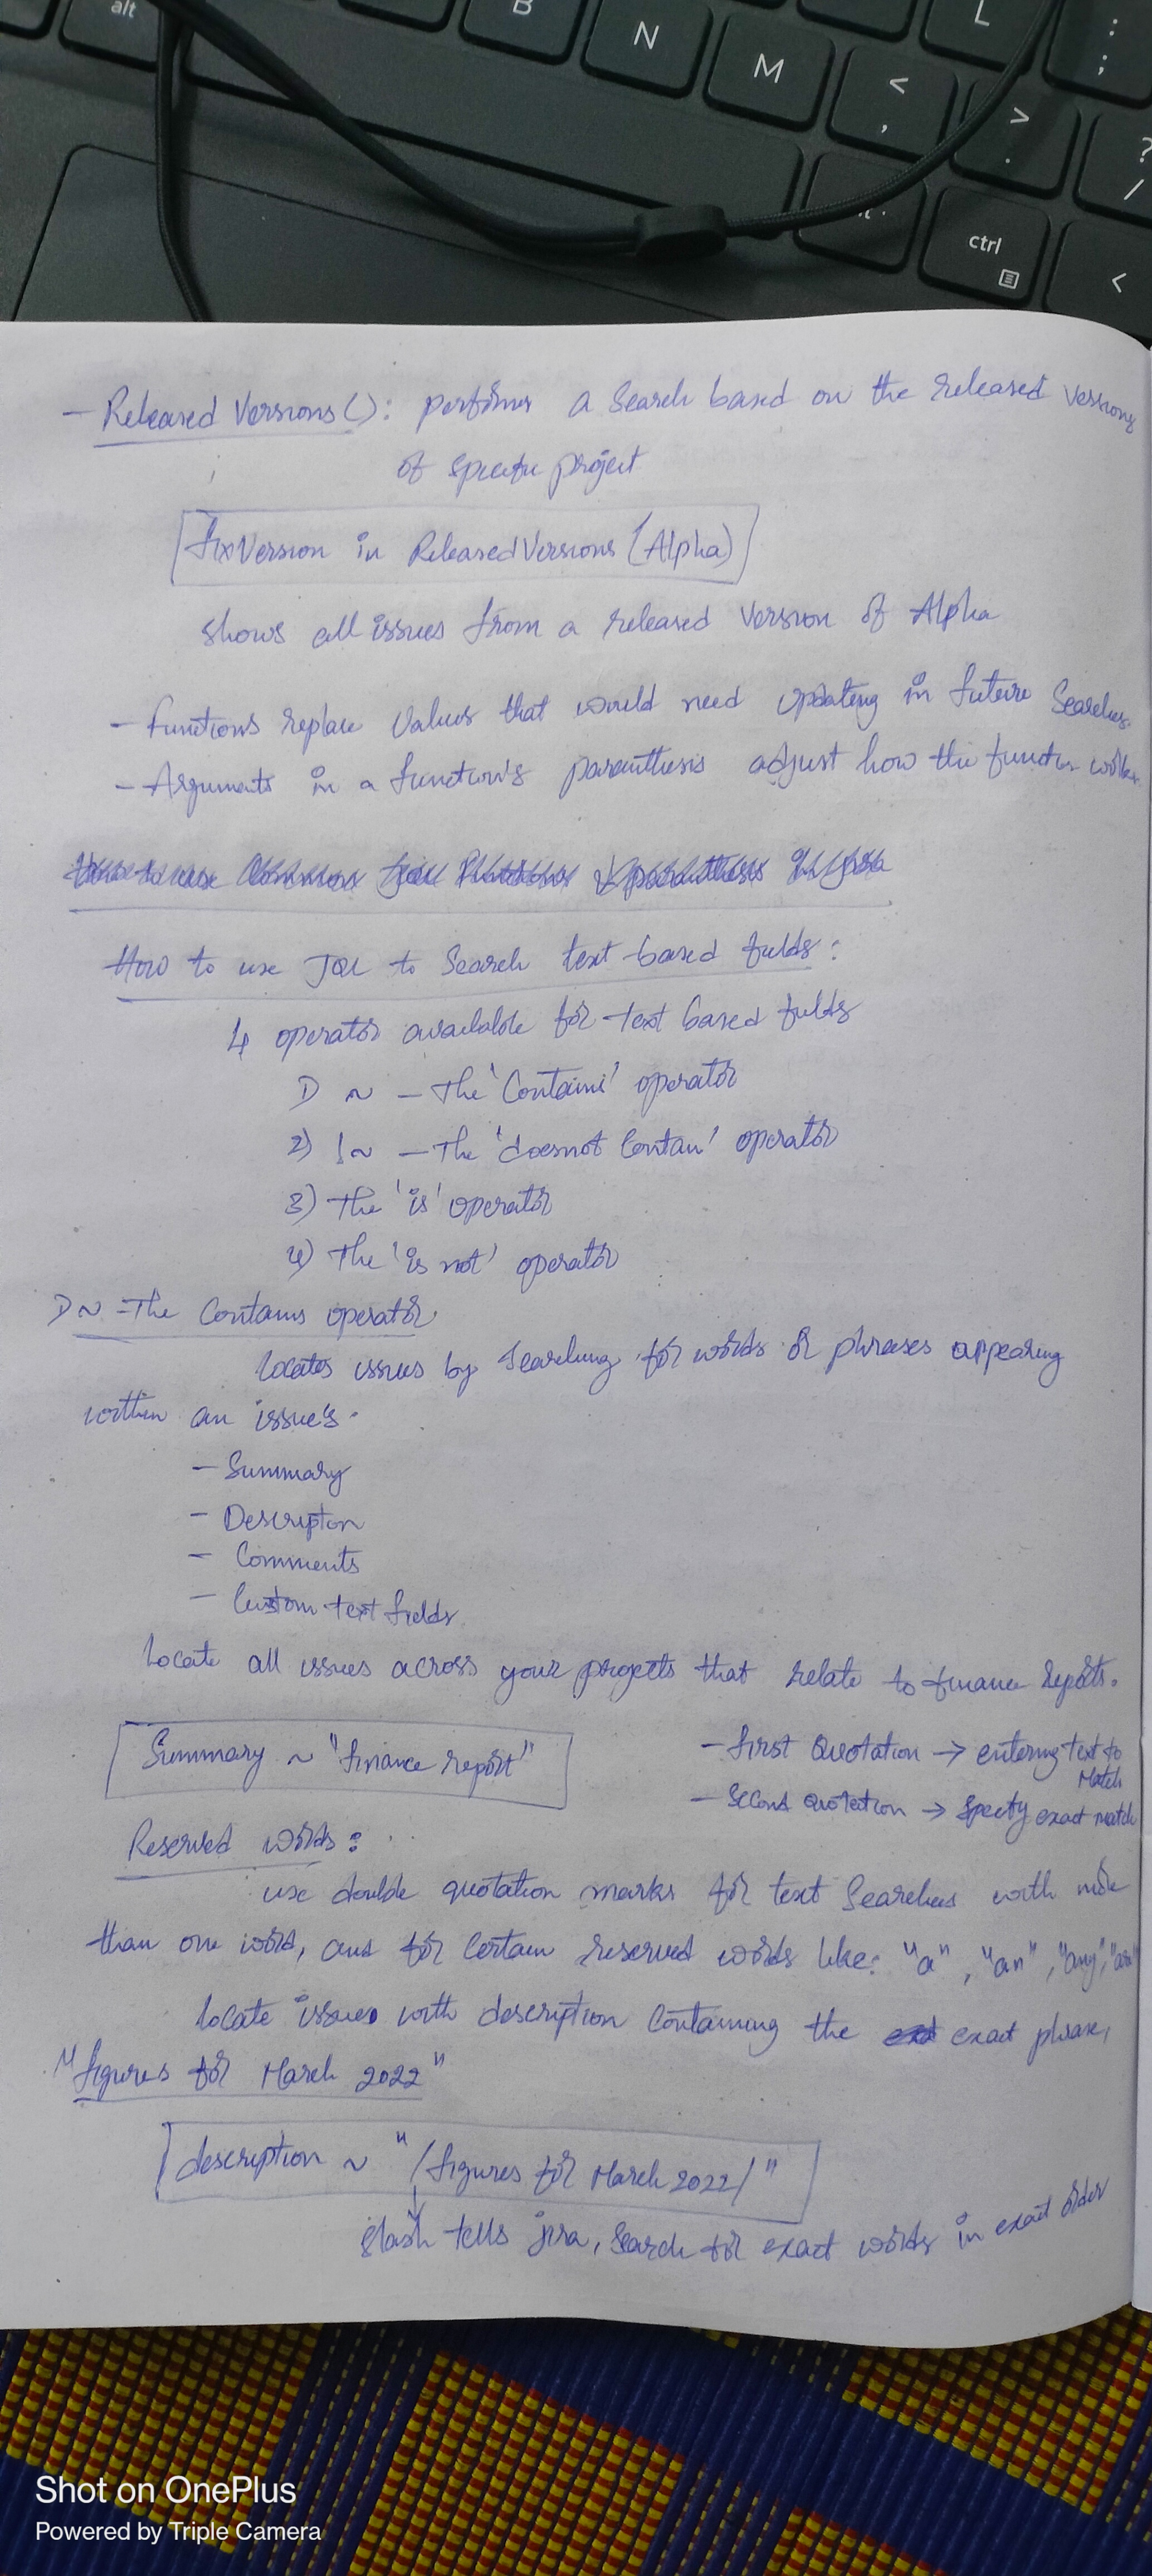 alt
B
N
M
L
:
;
<
,
>
.
?
/
ctrl
<
- Released Versions(): performs a search based on the released versions
of specific project
fixVersion in ReleasedVersions (Alpha)
shows all issues from a released version of Alpha
- Functions replace values that would need updating in future searches.
- Arguments in a function's paranthesis adjust how the function works.
How to use JQL to search text-based fields:
4 operator available for text based fields
1) ~ - The 'Contains' operator
2) !~ - The 'doesnot Contain' operator
3) The 'is' operator
4) The 'is not' operator
1) ~ - The Contains operator.
locates issues by searching for words or phrases appearing
within an issue's.
- Summary
- Description
- Comments
- Custom text fields.
Locate all issues across your projects that relate to finance reports.
Summary ~ "finance report"
- First Quotation → entering text to
Match
- Second quotation → specify exact match
Reserved words:
use double quotation marks for text searches with more
than one word, and for certain reserved words like: "a", "an", "any",
locate issues with description containing the exact phrase,
"figures for March 2022"
description ~ "/figures for March 2022/"
slash tells jira, search for exact words in exact order
Shot on OnePlus
Powered by Triple Camera